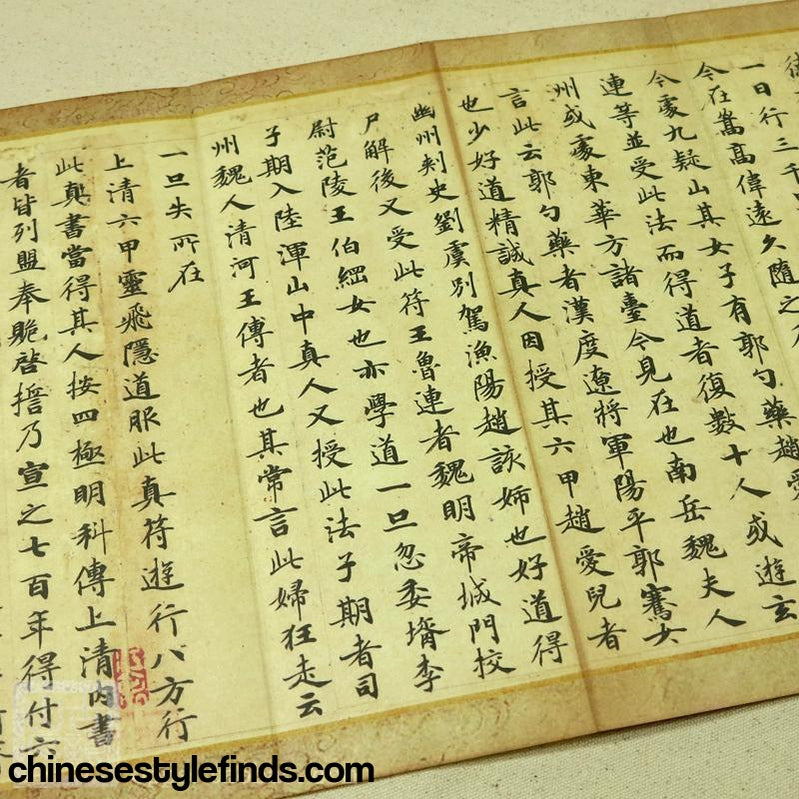 一日行三千
今在嵩高偉遠久隨之
今處九疑山其女子有郭勺藥趙愛
連等並受此法而得道者復數十人或遊玄
州或處東華方諸臺今見在也南岳魏夫人
言此云郭勺藥者漢度遼將軍陽平郭騫女
也少好道精誠真人因授其六甲趙愛兒者
幽州刾史劉虞別駕漁陽趙該姉也好道得
尸解後又受此符王魯連者魏明帝城門校
尉范陵王伯綱女也亦學道一旦忽委壻李
子期入陸渾山中真人又授此法子期者司
州魏人清河王傳者也其常言此婦狂走云
一旦失所在
上清六甲靈飛隱道服此真符遊行八方行
此真書當得其人按四極明科傳上清內書
者皆列盟奉貺啓擔乃宣之七百年得付六
chinesestylefinds.com